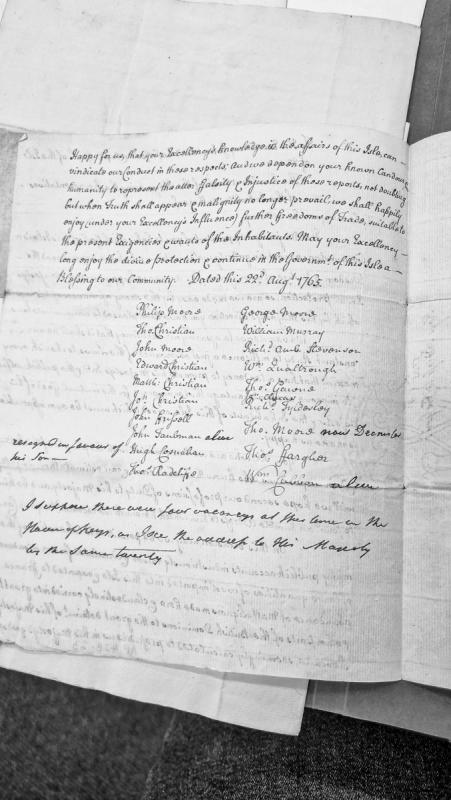 Happy for us, that your Excellency's knowledge in the affairs of this Isle, can
vindicate our Conduct in these respects; And we depend on your known Candour &
humanity to represent the utter falsity & Injustice of those reports, not doubting
but when Truth shall appear & malignity no longer prevail we shall happily
enjoy (under your Excellency's Influence) further freedoms of Trade, suitable to
the present Exigencies & wants of the Inhabitants. May your Excellency
long enjoy the divine protection & continue in the Governmt. of this Isle a
Blessing to our Community. Dated this 22d. Augt. 1765.
Philip Moore George Moore
Tho: Christian William Murray
John Moore Richd. Amb. Stevenson
Edwd Christian Wm. Qualtrough
Matth: Christian Thos. Gawne
Jon. Christian
John Frissell
John Taubman alive Tho. Moore now Deemster
resigned in favour of Hugh Cosnahan Thos. Fargher
his Son
Thos. Radcliffe Wm. alive
I suppose there were four vacancys at this time in the
House of Keys, as I see the address to His Majesty
by the same twenty